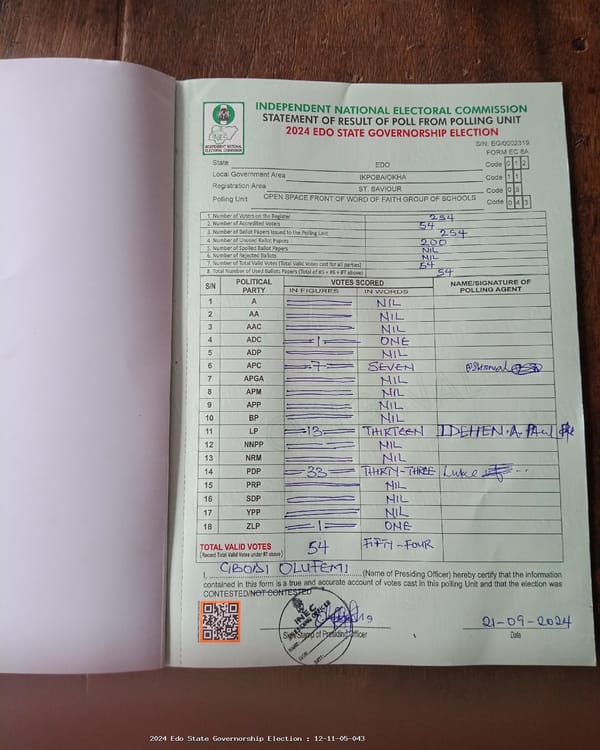 INDEPENDENT NATIONAL ELECTORAL COMMISSION
STATEMENT OF RESULT OF POLL FROM POLLING UNIT
2024 EDO STATE GOVERNORSHIP ELECTION
S/N: EGI0002319
FORM EC 8A
State EDO Code 0 1 2
Local Government Area IKPOBA/OKHA Code 1 1
Registration Area ST. SAVIOUR Code 0 5
Polling Unit OPEN SPACE FRONT OF WORD OF FAITH GROUP OF SCHOOLS Code 0 4 3
1. Number of Voters on the Register 254
2. Number of Accredited Voters 54
3. Number of Ballot Papers Issued to the Polling Unit 254
4. Number of Unused Ballot Papers 200
5. Number of Spoiled Ballot Papers NIL
6. Number of Rejected Ballots NIL
7. Number of Total Valid Votes (Total Valid Votes cast for all parties) 54
8. Total Number of Used Ballots Papers (Total of #5 + #6 + #7 above) 54
S/N POLITICAL PARTY VOTES SCORED NAME/SIGNATURE OF POLLING AGENT
IN FIGURES IN WORDS
1 A NIL
2 AA NIL
3 AAC NIL
4 ADC 1 ONE
5 ADP NIL
6 APC 7 SEVEN
7 APGA NIL
8 APM NIL
9 APP NIL
10 BP NIL
11 LP 13 THIRTEEN IDEHEN.A.PAUL
12 NNPP NIL
13 NRM NIL
14 PDP 33 THIRTY-THREE Luke
15 PRP NIL
16 SDP NIL
17 YPP NIL
18 ZLP 1 ONE
TOTAL VALID VOTES 54 FIFTY-FOUR
(Record Total Valid Votes under #7 above)
I, GBOBI OLUFEMI (Name of Presiding Officer) hereby certify that the information
contained in this form is a true and accurate account of votes cast in this polling Unit and that the election was
CONTESTED/NOT CONTESTED
INEC
21-09-2024
Sign/Stamp of Presiding Officer Date
2024 Edo State Governorship Election : 12-11-05-043